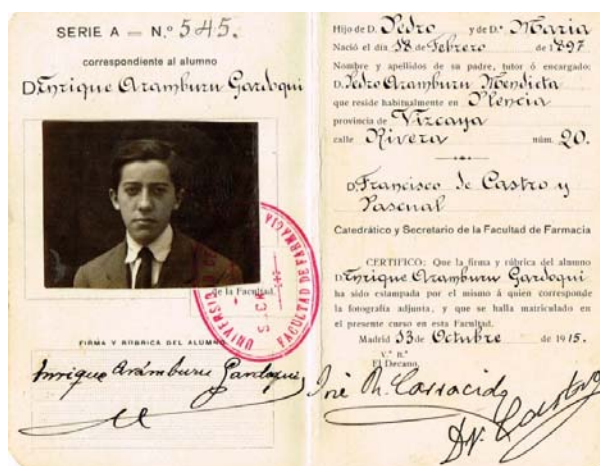 SERIE A = N.º 545.
correspondiente al alumno
D. Enrique Aramburu Gardoqui
de la Facultad.
UNIVERSIDAD
FACULTAD DE FARMACIA
FIRMA Y RÚBRICA DEL ALUMNO
Enrique Arámburu Gardoqui
Hijo de D. Pedro y de D.ª Maria
Nació el día 18 de Febrero de 1897.
Nombre y apellidos de su padre, tutor ó encargado:
D. Pedro Aramburu Mendieta
que reside habitualmente en Plencia
provincia de Vizcaya
calle Rivera núm. 20.
D. Francisco de Castro y
Pascual
Catedrático y Secretario de la Facultad de Farmacia
CERTIFICO: Que la firma y rúbrica del alumno
D. Enrique Aramburu Gardoqui
ha sido estampada por el mismo á quien corresponde
la fotografía adjunta, y que se halla matriculado en
el presente curso en esta Facultad.
Madrid 13 de Octubre de 1915.
V.º B.º
El Decano,
José R. Carracido
Dr. Castro